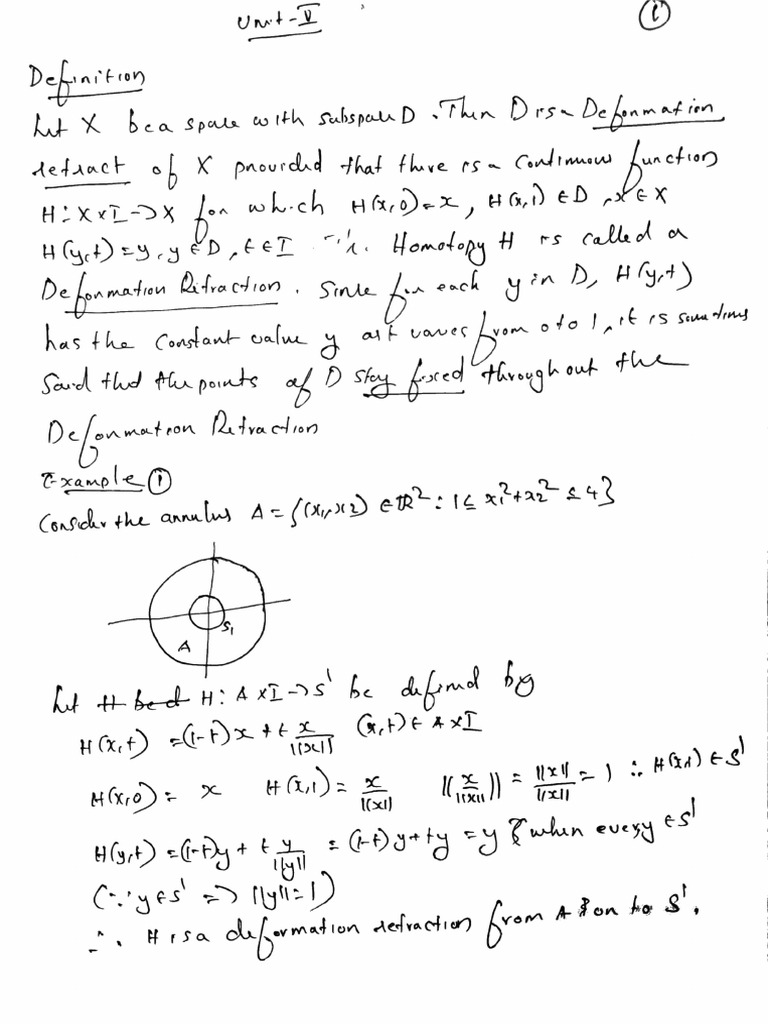 Unit-V
(1)
Definition
Let X be a space with subspace D. Then D is a Deformation
retract of X provided that there is a continuous function
H: X×I→X for which H(x,0)=x, H(x,1) ∈ D, x ∈ X
H(y,t)=y, y ∈ D, t ∈ I Homotopy H is called a
Deformation Retraction. Since for each y in D, H(y,t)
has the constant value y as t varies from 0 to 1, it is sometimes
Said that the points of D stay fixed throughout the
Deformation Retraction
Example ①
Consider the annulus A = {(x1,x2) ∈ ℝ² : 1 ≤ x1²+x2² ≤ 4}
S1
A
Let H be d H: A×I→S¹ be defined by
H(x,t) = (1-t)x + t x/||x|| (x,t) ∈ A×I
H(x,0) = x H(x,1) = x/||x|| ||x/||x|||| = ||x||/||x|| = 1 ∴ H(x,1) ∈ S¹
H(y,t) = (1-t)y + t y/||y|| = (1-t)y+ty = y { when every ∈ S¹
(∵ y ∈ S¹ => ||y||=1)
∴ H is a deformation retraction from A on to S¹.